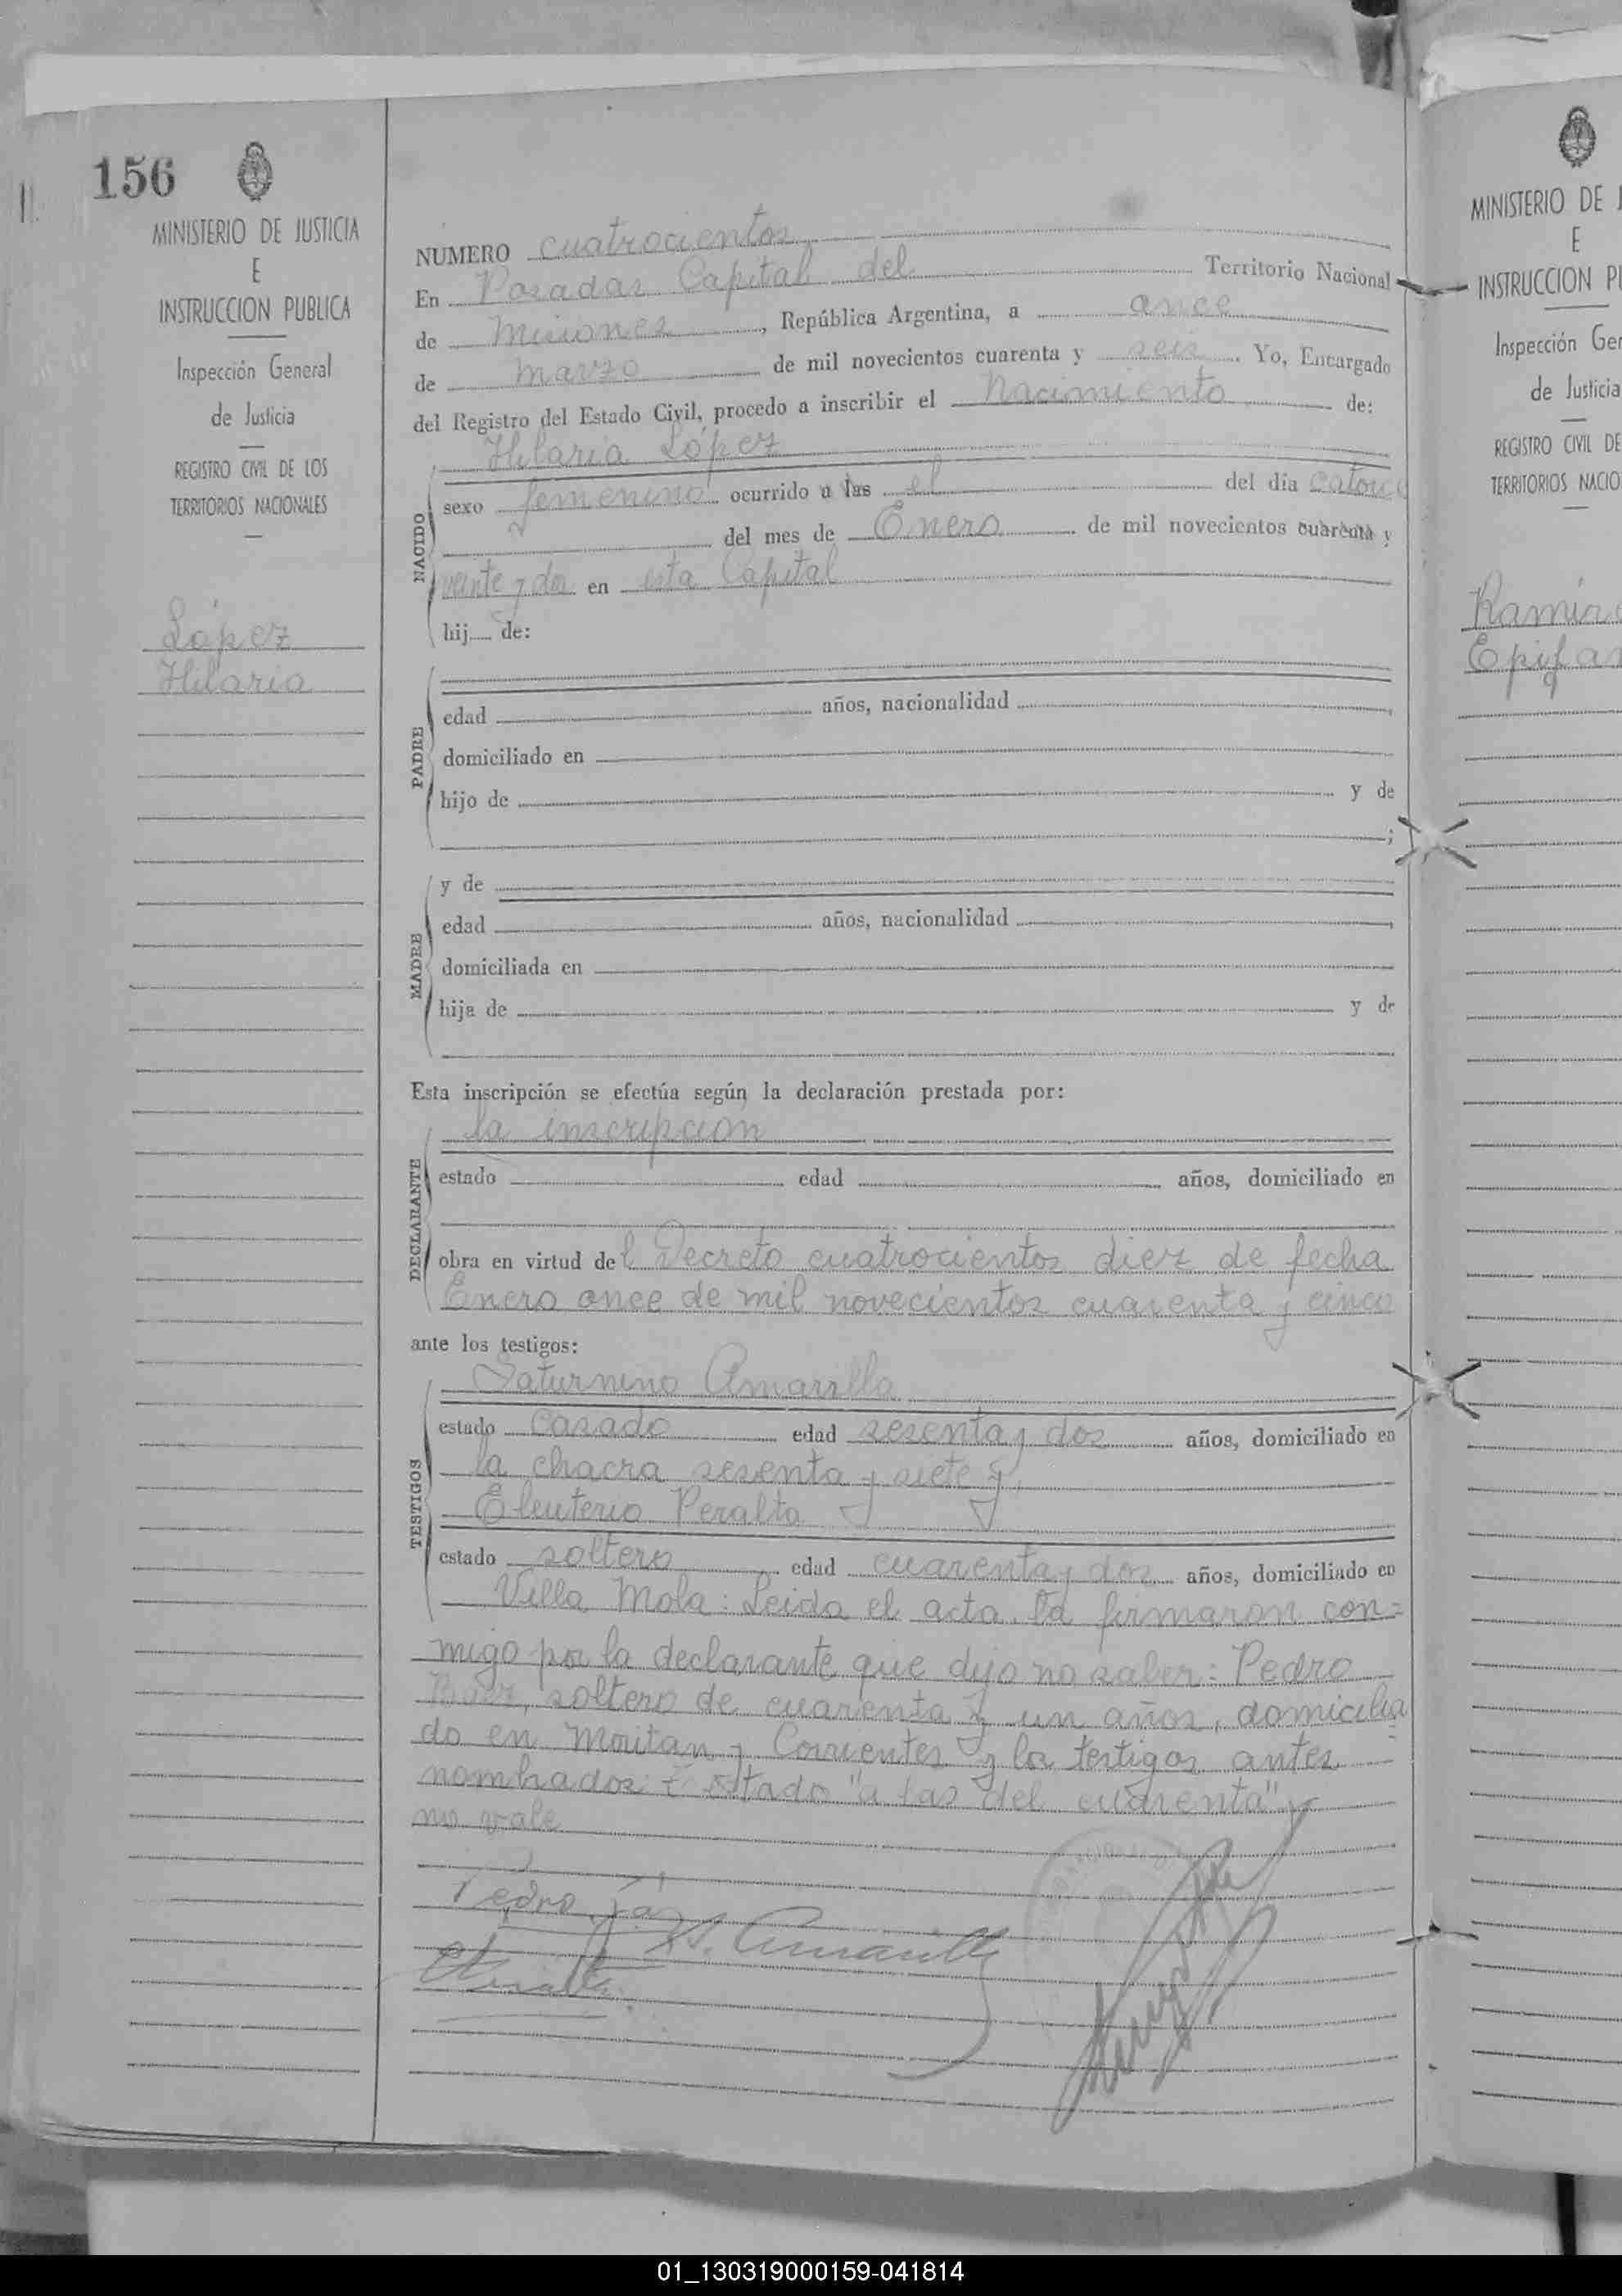 156
MINISTERIO DE JUSTICIA
E
INSTRUCCION PUBLICA
Inspección General
de Justicia
REGISTRO CIVIL DE LOS
TERRITORIOS NACIONALES
López
Hilaria
NUMERO cuatrocientos
En Posadas Capital del Territorio Nacional
de Misiones, República Argentina, a once
de marzo de mil novecientos cuarenta y seis. Yo, Encargado
del Registro del Estado Civil, procedo a inscribir el nacimiento de:
NACIDO
Hilaria López
sexo femenino ocurrido a las el del día catorce
del mes de Enero de mil novecientos cuarenta y
veinte y dos en esta Capital
hij.... de:
PADRE
edad años, nacionalidad
domiciliado en
hijo de y de
;
MADRE
y de
edad años, nacionalidad
domiciliada en
hija de y de
Esta inscripción se efectúa según la declaración prestada por:
DECLARANTE
la inscripcion
estado edad años, domiciliado en
obra en virtud del Decreto cuatrocientos diez de fecha
Enero once de mil novecientos cuarenta y cinco
ante los testigos:
TESTIGOS
Saturnino Amarilla
estado casado edad sesenta y dos años, domiciliado en
la chacra sesenta y siete y
Eleuterio Peralta
estado soltero edad cuarenta y dos años, domiciliado en
Villa Mola: Leida el acta la firmaron con=
migo por la declarante que dijo no saber: Pedro
Baez, soltero de cuarenta y un años, domicilia
do en y Corrientes y los testigos antes
nombrados: "a las del cuarenta" y
no vale
Pedro
S. Amarilla
MINISTERIO DE J
E
INSTRUCCION PU
Inspección Gen
de Justicia
REGISTRO CIVIL DE
TERRITORIOS NACIO
Ramír
Epifan
01_130319000159-041814